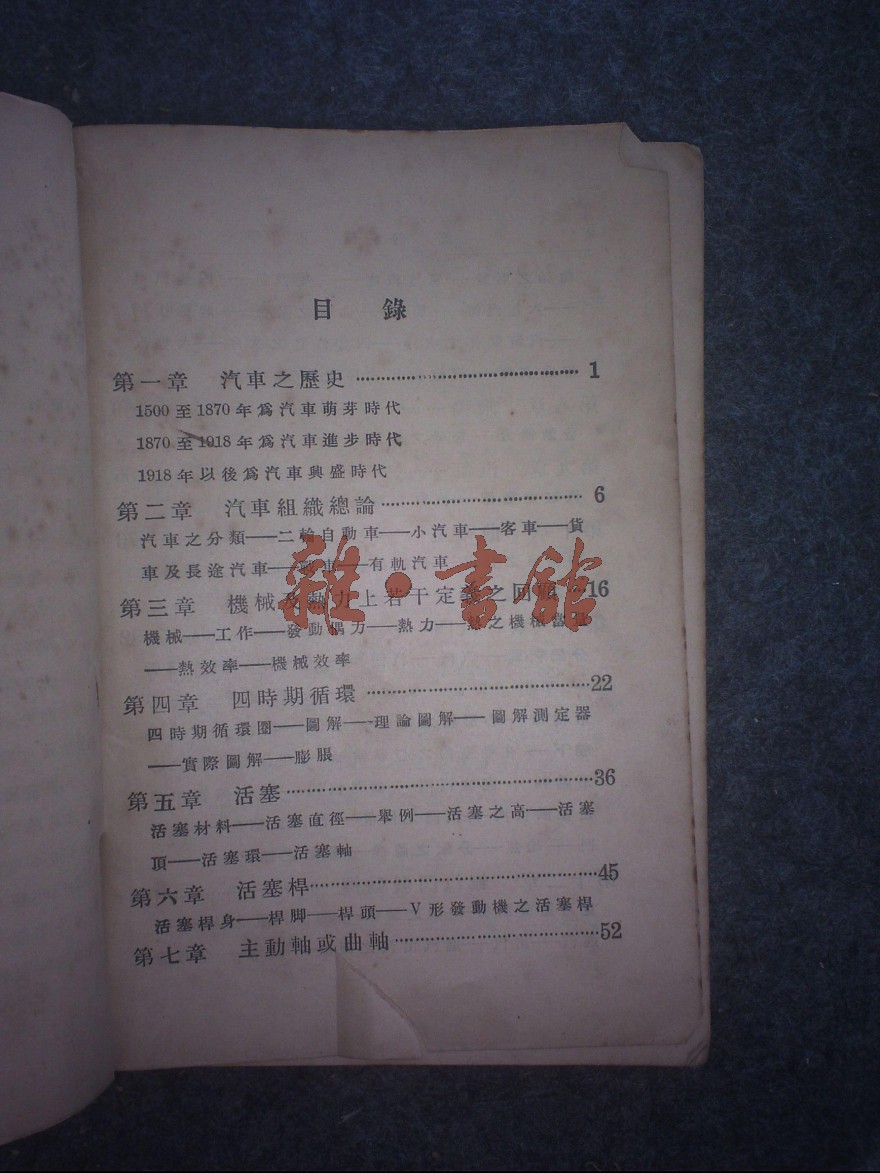 目 錄
第一章 汽車之歷史 1
1500 至 1870 年為汽車萌芽時代
1870 至 1918 年為汽車進步時代
1918 年以後為汽車興盛時代
第二章 汽車組織總論 6
汽車之分類——二輪自動車——小汽車——客車——貨
車及長途汽車——車——有軌汽車
第三章 機械及熱力上若干定義之回 16
機械——工作——發動偶力——熱力——熱之機械當
——熱效率——機械效率
第四章 四時期循環 22
四時期循環圈——圖解——理論圖解——圖解測定器
——實際圖解——膨脹
第五章 活塞 36
活塞材料——活塞直徑——舉例——活塞之高——活塞
頂——活塞環——活塞軸
第六章 活塞桿 45
活塞桿身——桿脚——桿頭——V 形發動機之活塞桿
第七章 主動軸或曲軸 52
雜·書館